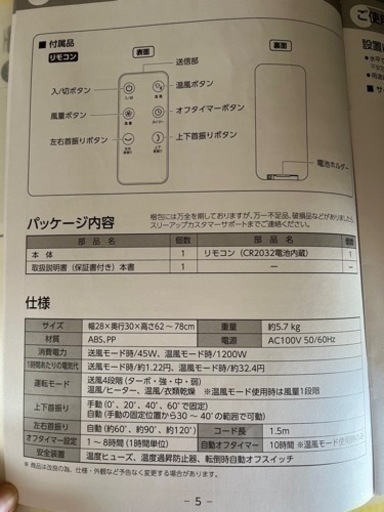 ■ 付属品
リモコン
表面
裏面
送信部
入/切ボタン
温風ボタン
風量ボタン
オフタイマーボタン
左右首振りボタン
上下首振りボタン
電池ホルダー
入/切
温風
風量
タイマー
左右首振り
上下首振り
パッケージ内容
梱包には万全を期しておりますが、万一不足品、破損品などがありましたら、
スリーアップカスタマーサポートまでご連絡ください。
部品名 個数 部品名 個数
本体 1 リモコン（CR2032電池内蔵） 1
取扱説明書（保証書付き）本書 1 ー ー
仕様
サイズ 幅28×奥行30×高さ62〜78cm 重量 約5.7 kg
材質 ABS、PP 電源 AC100V 50/60Hz
消費電力 送風モード時/45W、温風モード時/1200W
1時間あたりの電気代 送風モード時/約1.22円、温風モード時/約32.4円
運転モード 送風4段階 (ターボ・強・中・弱)
温風/ヒーター、温風/衣類乾燥 ※温風モード使用時は風量1段階
上下首振り 手動（0°、20°、40°、60°で固定）
自動（手動の固定位置から30〜40°の範囲で可動）
左右首振り 自動（約60°、約90°、約120°） コード長 1.5m
オフタイマー設定 1〜8時間（1時間単位） 自動オフタイマー 10時間 ※温風モード使用
安全装置 温度ヒューズ、温度過昇防止器、転倒時自動オフスイッチ
※ 商品は改良の為、仕様・外観など予告なく変更に場合があります。
- 5 -
ご使
設置